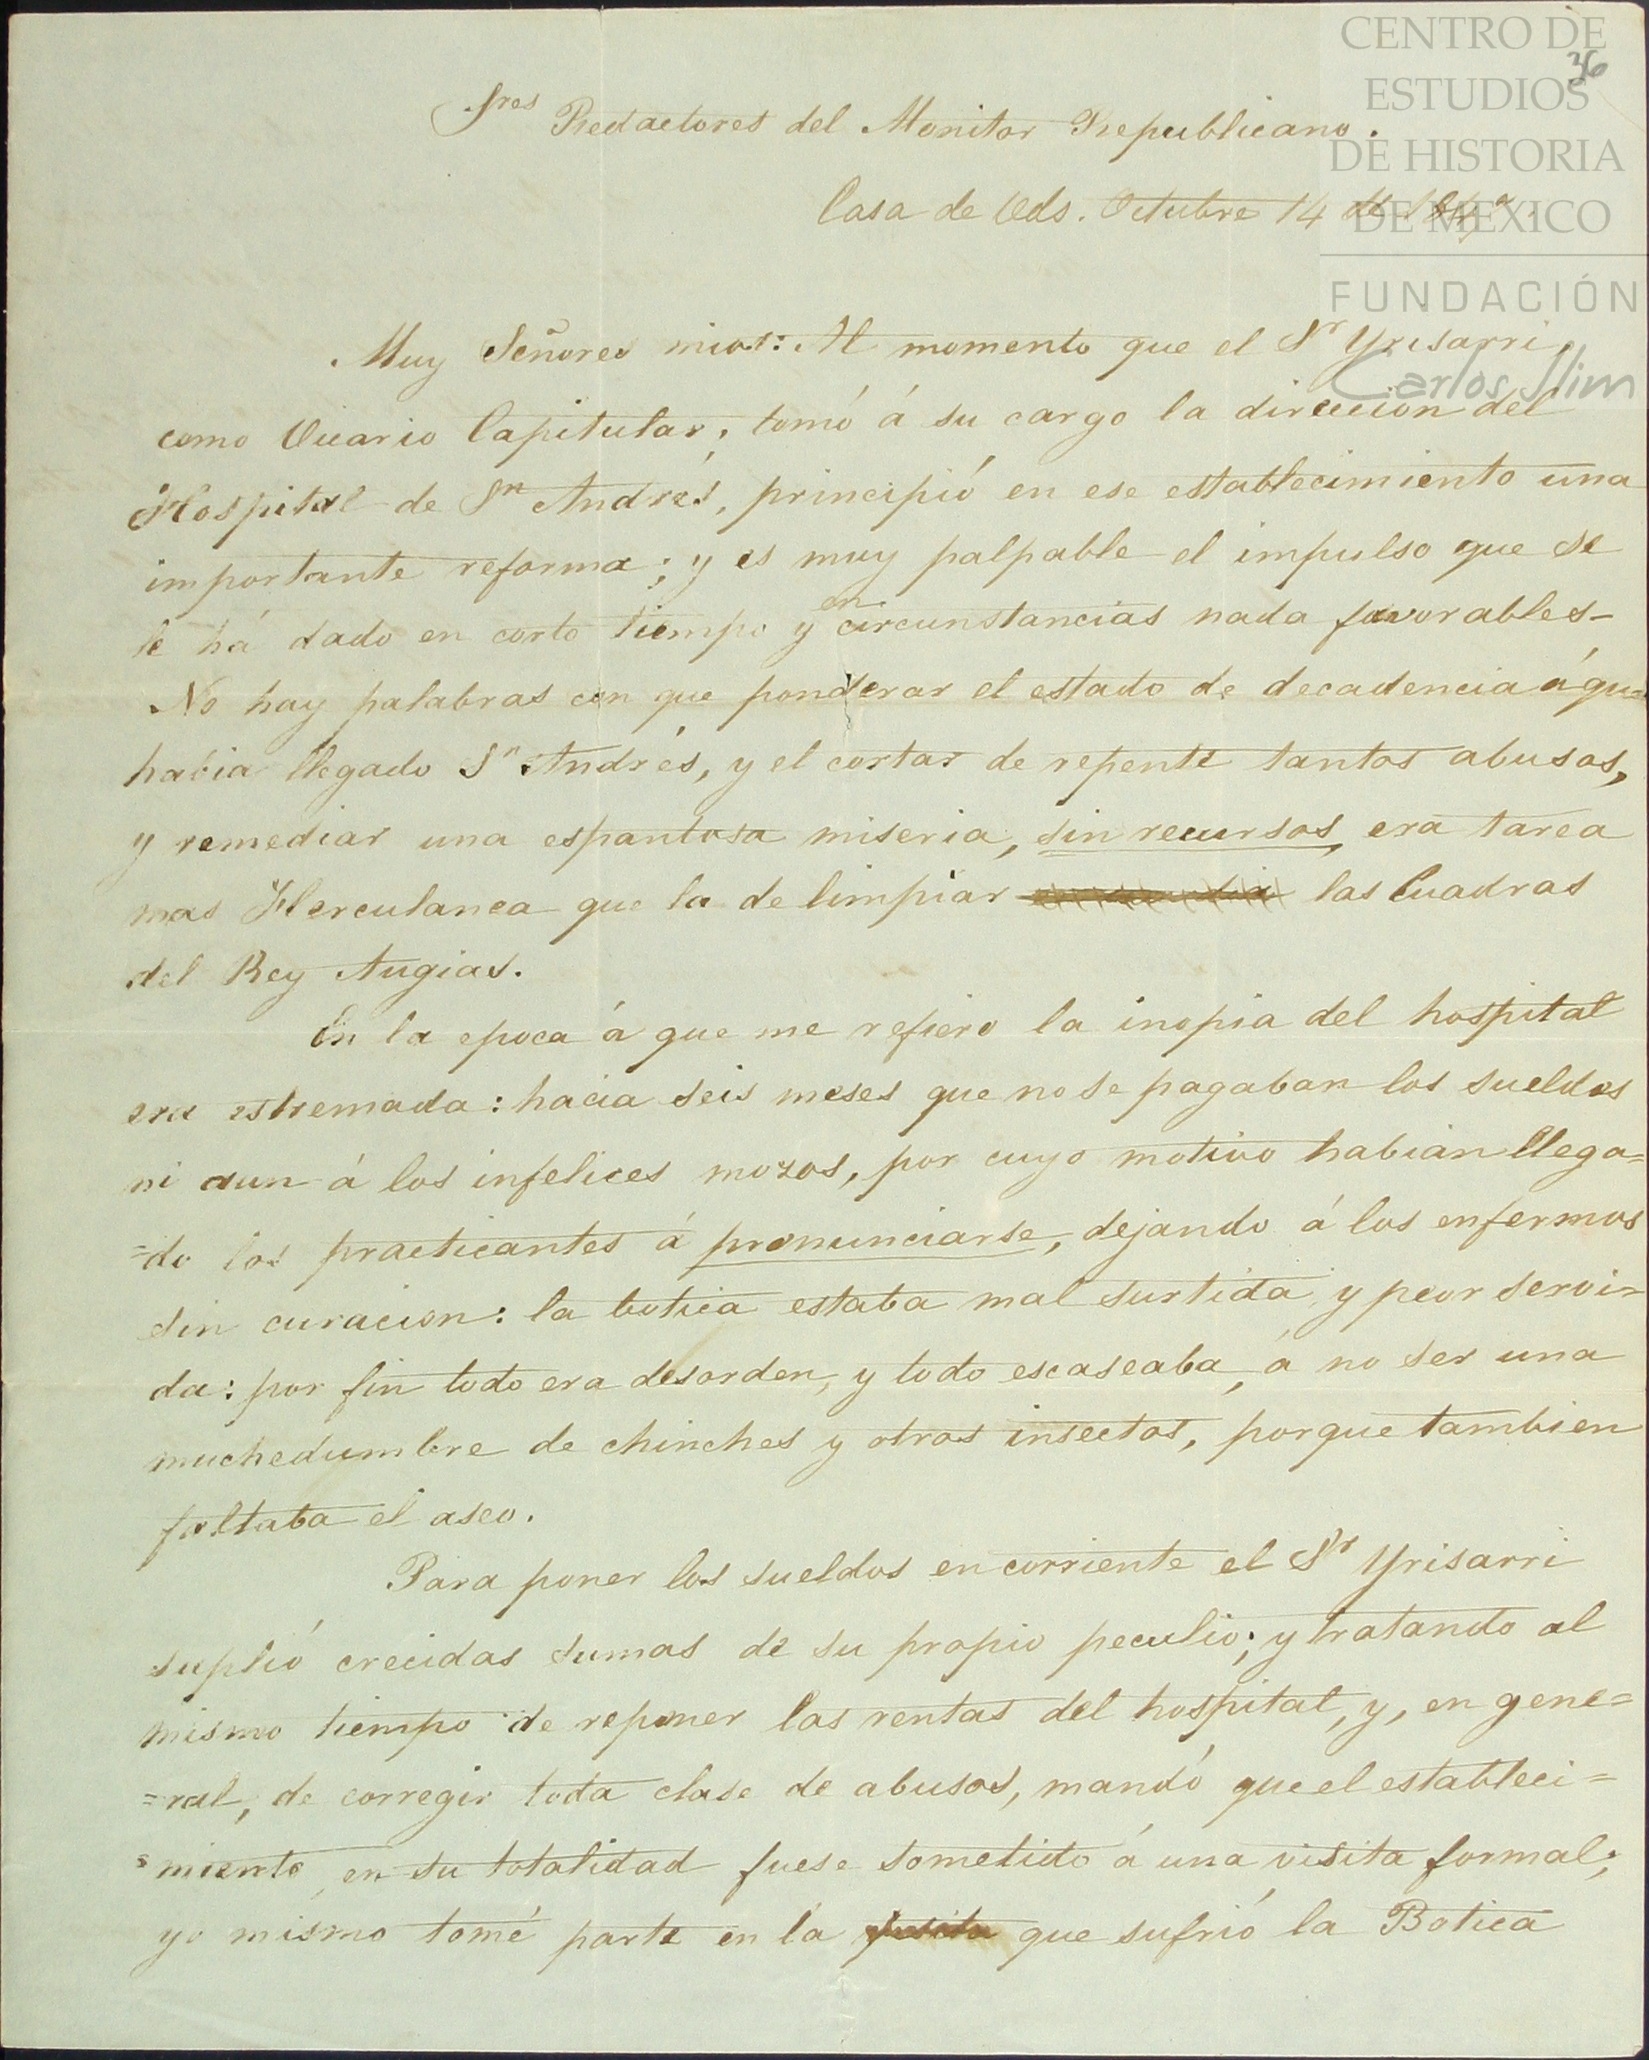 CENTRO DE
ESTUDIOS
DE HISTORIA
DE MÉXICO
FUNDACIÓN
Carlos Slim
36
Sres Redactores del Monitor Republicano.
Casa de Uds. Octubre 14 de
Muy Señores mios: Al momento que el Sr Yrisarri,
como Vicario Capitular, tomó á su cargo la direccion del
Hospital de Sn Andrés, principió en ese establecimiento una
importante reforma; y es muy palpable el impulso que se
le há dado en corto tiempo y en circunstancias nada favorables-
No hay palabras con que ponderar el estado de decadencia á que
habia llegado Sn Andrés, y el cortar de repente tantos abusos,
y remediar una espantosa miseria, sin recursos, era tarea
mas Herculanea que la de limpiar las Cuadras
del Rey Augias.
En la epoca á que me refiero la inopia del hospital
era estremada: hacia seis meses que no se pagaban los sueldos
ni aun á los infelices mozos, por cuyo motivo habian llega=
=do los practicantes á pronunciarse, dejando á los enfermos
sin curacion: la botica estaba mal surtida y peor servi=
da: por fin todo era desorden, y todo escaseaba, á no ser una
muchedumbre de chinches y otros insectos, porque tambien
faltaba el aseo.
Para poner los sueldos en corriente el Sr Yrisarri
suplió crecidas sumas de su propio peculio; y tratando al
mismo tiempo de reponer las rentas del hospital, y, en gene=
=ral, de corregir toda clase de abusos, mandó que el estableci=
=miento, en su totalidad fuese sometido á una visita formal;
yo mismo tomé parte en la visita que sufrió la Botica